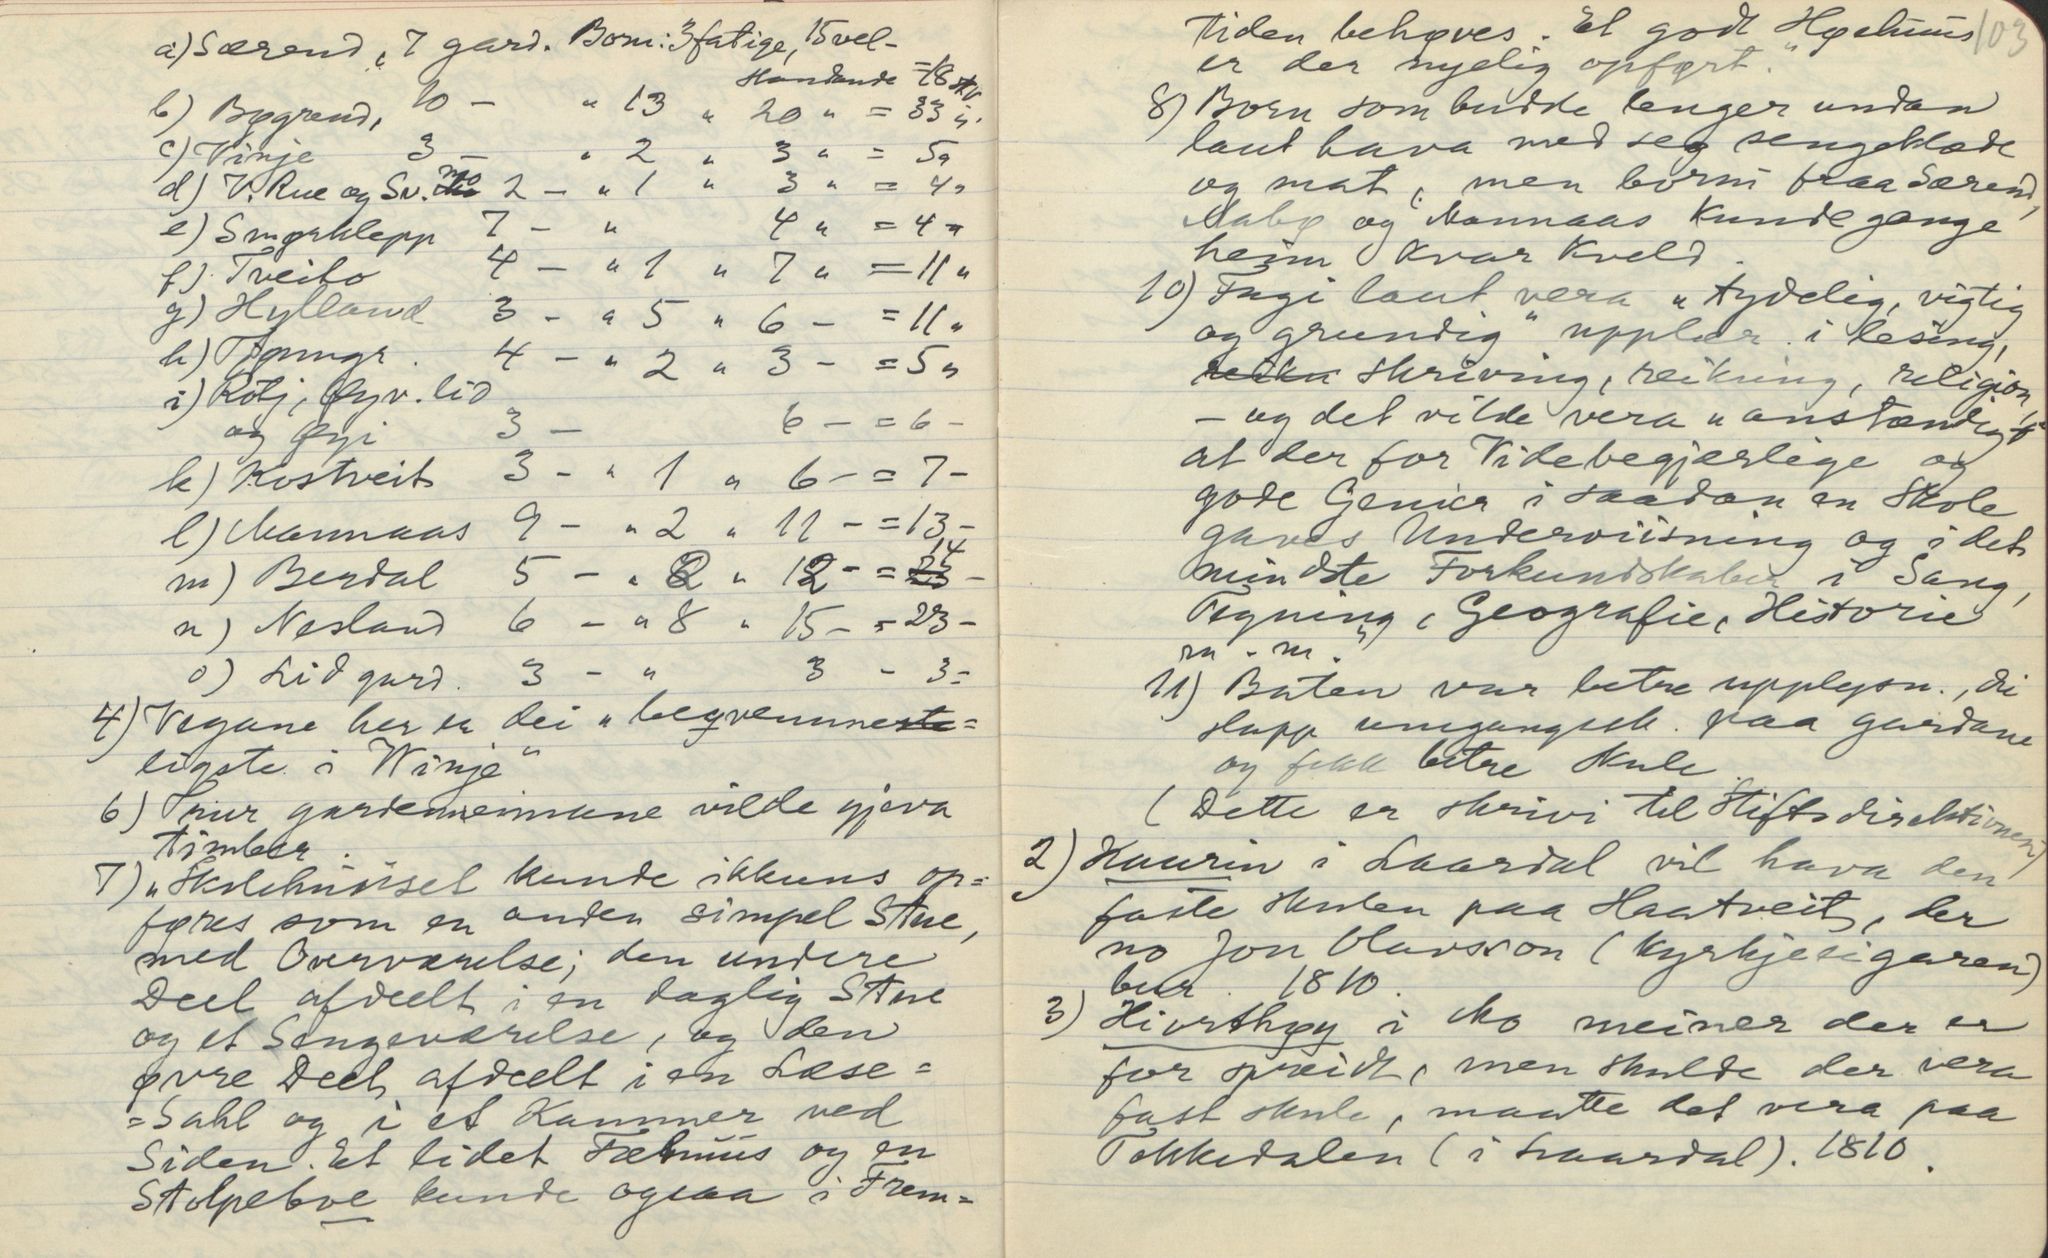 a) Særend, 7 gard. Born: 3 fatige, 15 vel-
standande = 18 stk.
b) Bøgrend, 10 - " 13 " 20 " = 33 "
c) Vinje 3 - " 2 " 3 " = 5 "
d) V. Rue og Sv. mo 2 - " 1 " 3 " = 4 "
e) Smørklepp 7 - " 4 " = 4 "
f) Tveito 4 - " 1 " 7 " = 11 "
g) Hylland 3 - " 5 " 6 - = 11 "
h) Tjønngr. 4 - " 2 " 3 - = 5 "
i) Rotj, Øyv. lid
og Øyi 3 - 6 - = 6 -
k) Kostveit 3 - " 1 " 6 - = 7 -
l) Mannaas 9 - " 2 " 11 - = 13 -
m) Berdal 5 - " 2 " 12 - = 14 -
n) Nesland 6 - " 8 " 15 - = 23 -
o) Lid gard. 3 - " 3 - 3 =
4) Vegane her er dei "beqvemme=
ligste i Winje"
6) Trur gardemennane vilde gjeva
timber.
7) "Skolehuuset kunde ikkuns op=
føres som en anden simpel Stue,
med Overværelse; den undere
Deel afdeelt i en daglig Stue
og et Sengeværelse, og den
øvre Deel afdeelt i en Læse=
=Sahl og i et Kammer ved
Siden. Et lidet Fæhuus og en
Stolpeboe kunde ogsaa i Frem=
103
tiden behøves. Et godt Høehuus
er der nyelig opført."
8) Born som budde lenger undan
laut hava med seg sengeklæde
og mat, men borni fraa Særend,
Nabø og Mannaas kunde gange
heim kvar kveld.
10) Ingi laut vera "tydelig, vigtig
og grundig" upplær. i lesing,
skriving, reikning, religion
- og det vilde vera "anstændigt
at der for Videbegjærlige og
gode Genier i saadan en Skole
gaves Underviisning og i det
mindste Forkundskaber i Sang,
Tegning, Geografie, Historie
m. m."
11) Baten var betre upplysn., dei
slapp umgangssk. paa gardane
og fekk betre skule.
(Dette er skrivi til Stiftsdirektionen)
2) Kaurin i Laardal vil hava den
faste skulen paa Haatveit, der
no Jon Olavsson (kyrkjeeigaren)
bur. 1810.
3) Hiorthøy i Mo meiner der er
for spreidt, men skulde der vera
fast skule, maatte det vera paa
Tokkedalen (i Laardal). 1810.